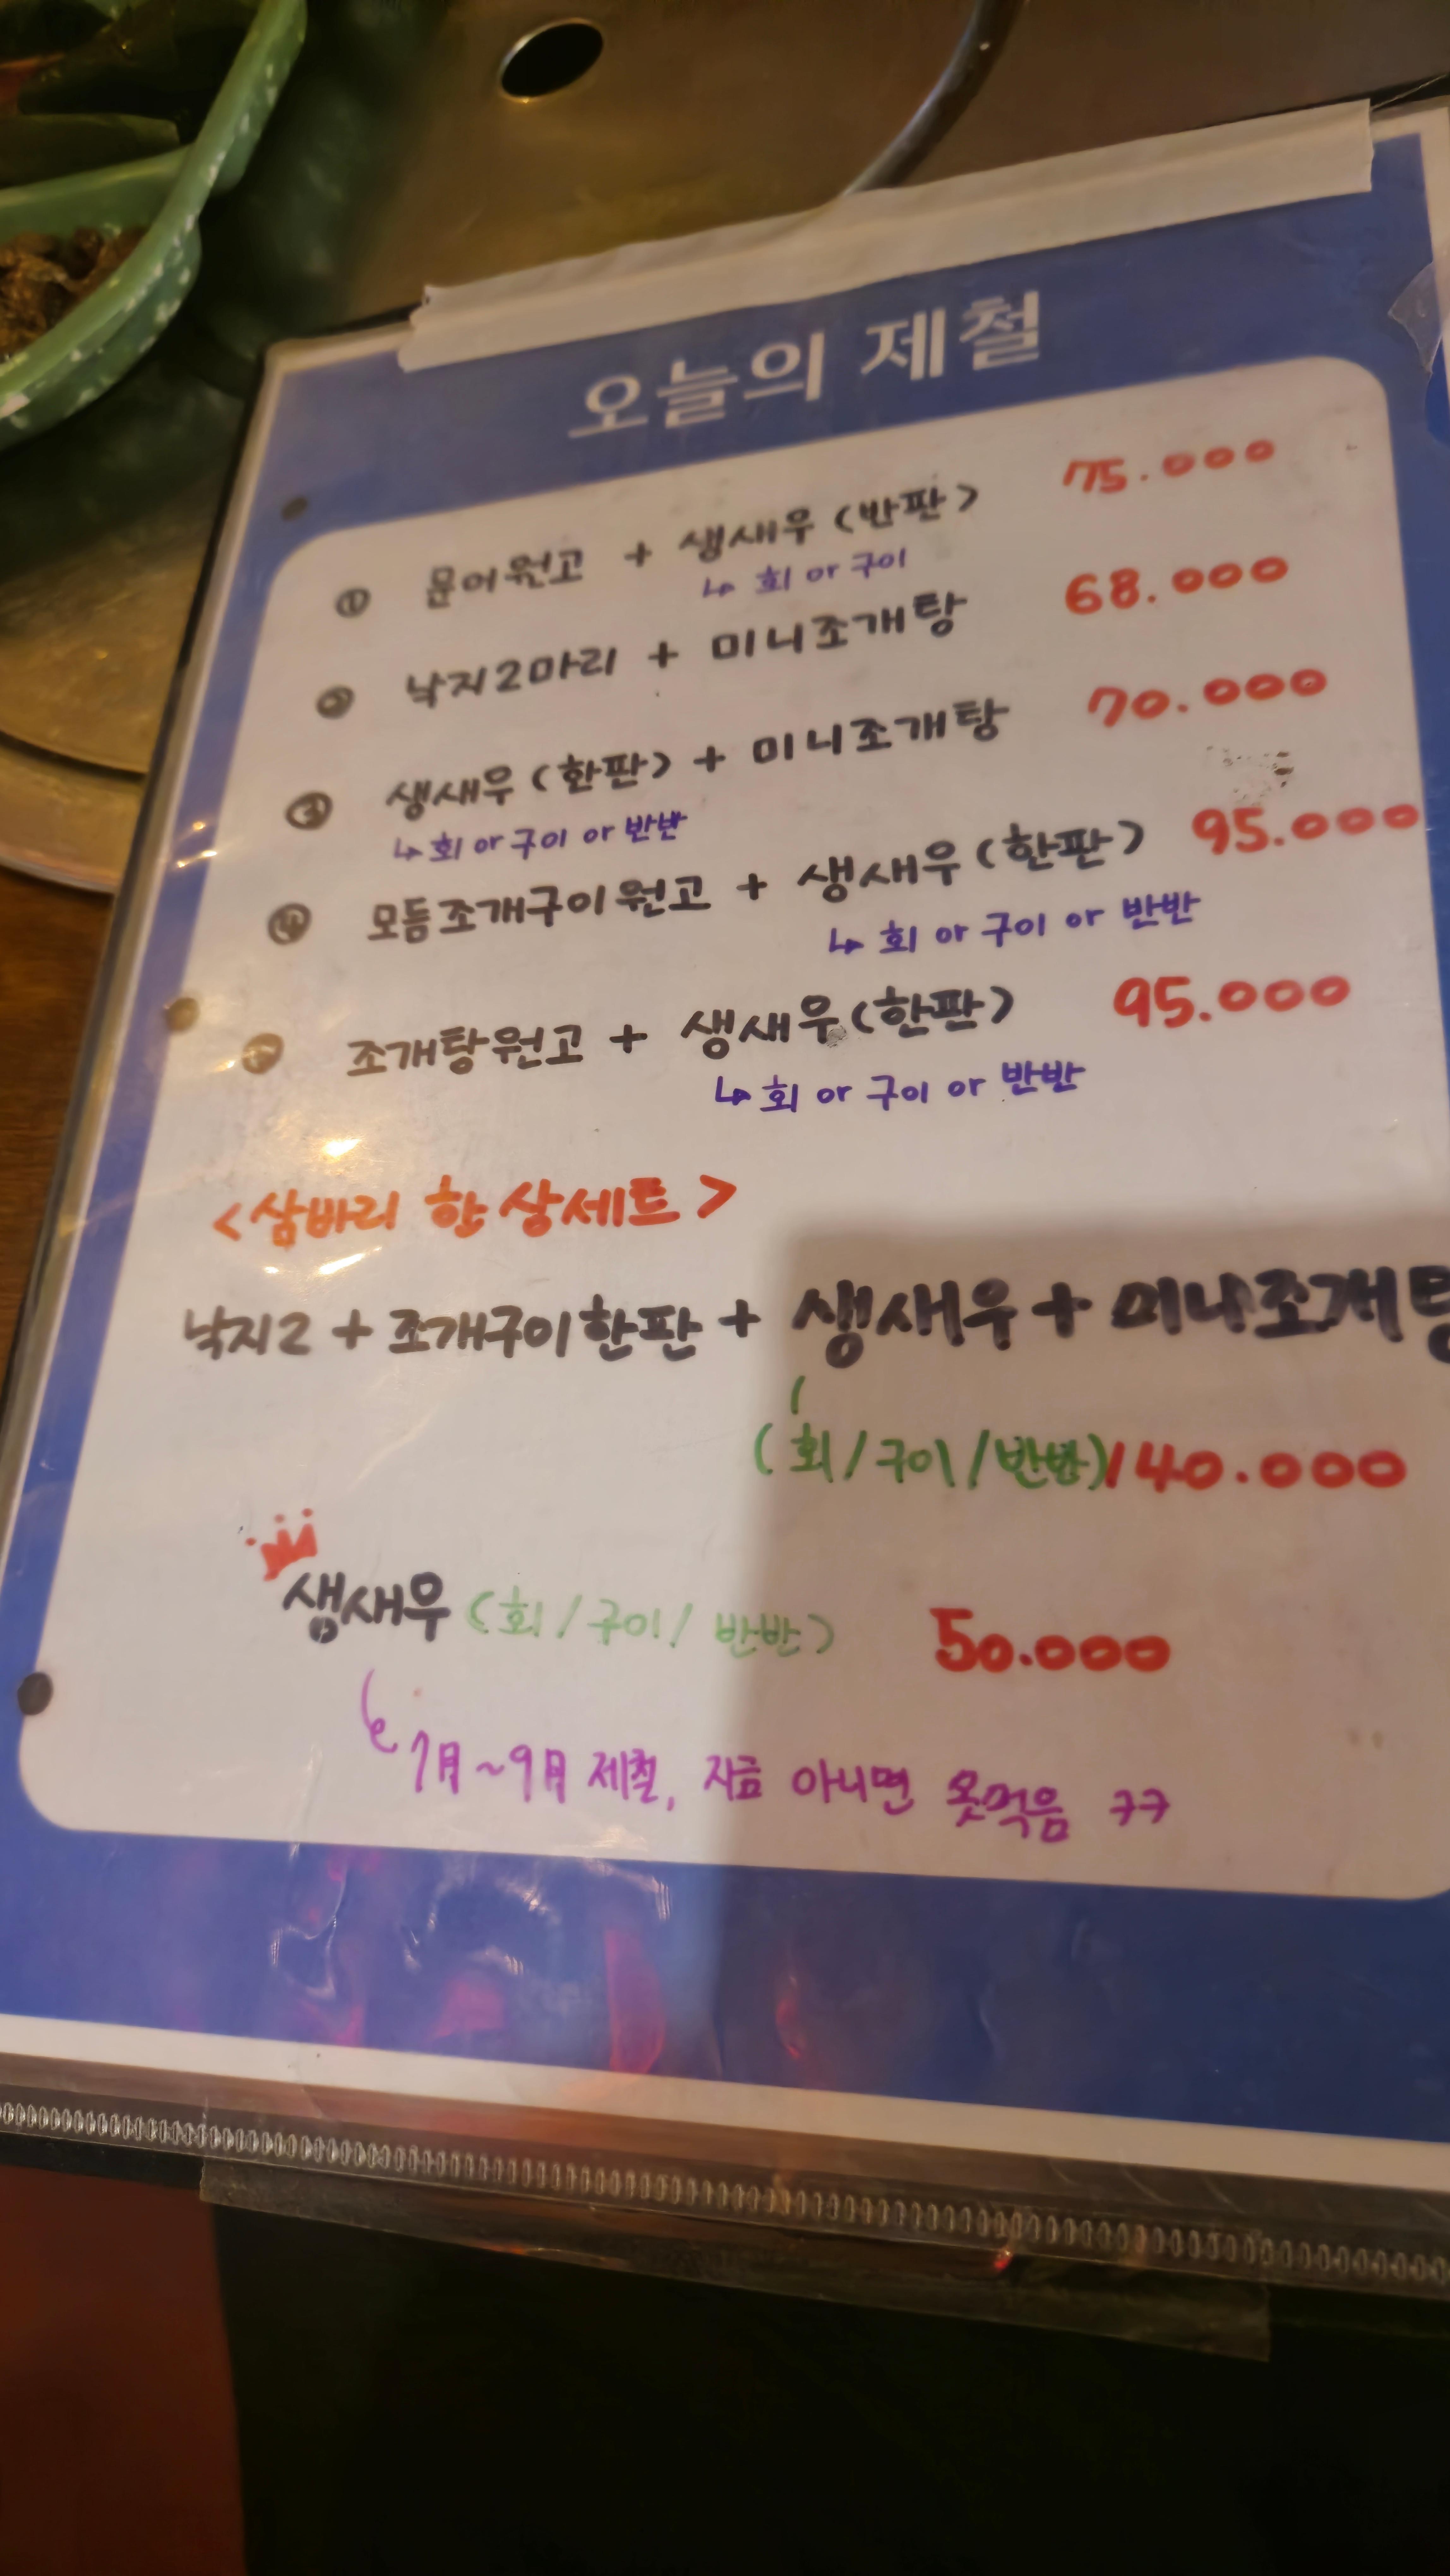 오늘의 제철
① 문어원고 + 생새우 (반판) 75.000
↳ 회 or 구이
② 낙지2마리 + 미니조개탕 68.000
③ 생새우 (한판) + 미니조개탕 70.000
↳ 회 or 구이 or 반반
④ 모듬조개구이원고 + 생새우 (한판) 95.000
↳ 회 or 구이 or 반반
⑤ 조개탕원고 + 생새우 (한판) 95.000
↳ 회 or 구이 or 반반
<삼바리 한상세트>
낙지2 + 조개구이한판 + 생새우 + 미니조개탕
(회/구이/반반) 140.000
생새우 (회/구이/반반) 50.000
7月~9月 제철, 지금 아니면 못먹음 ㅋㅋ